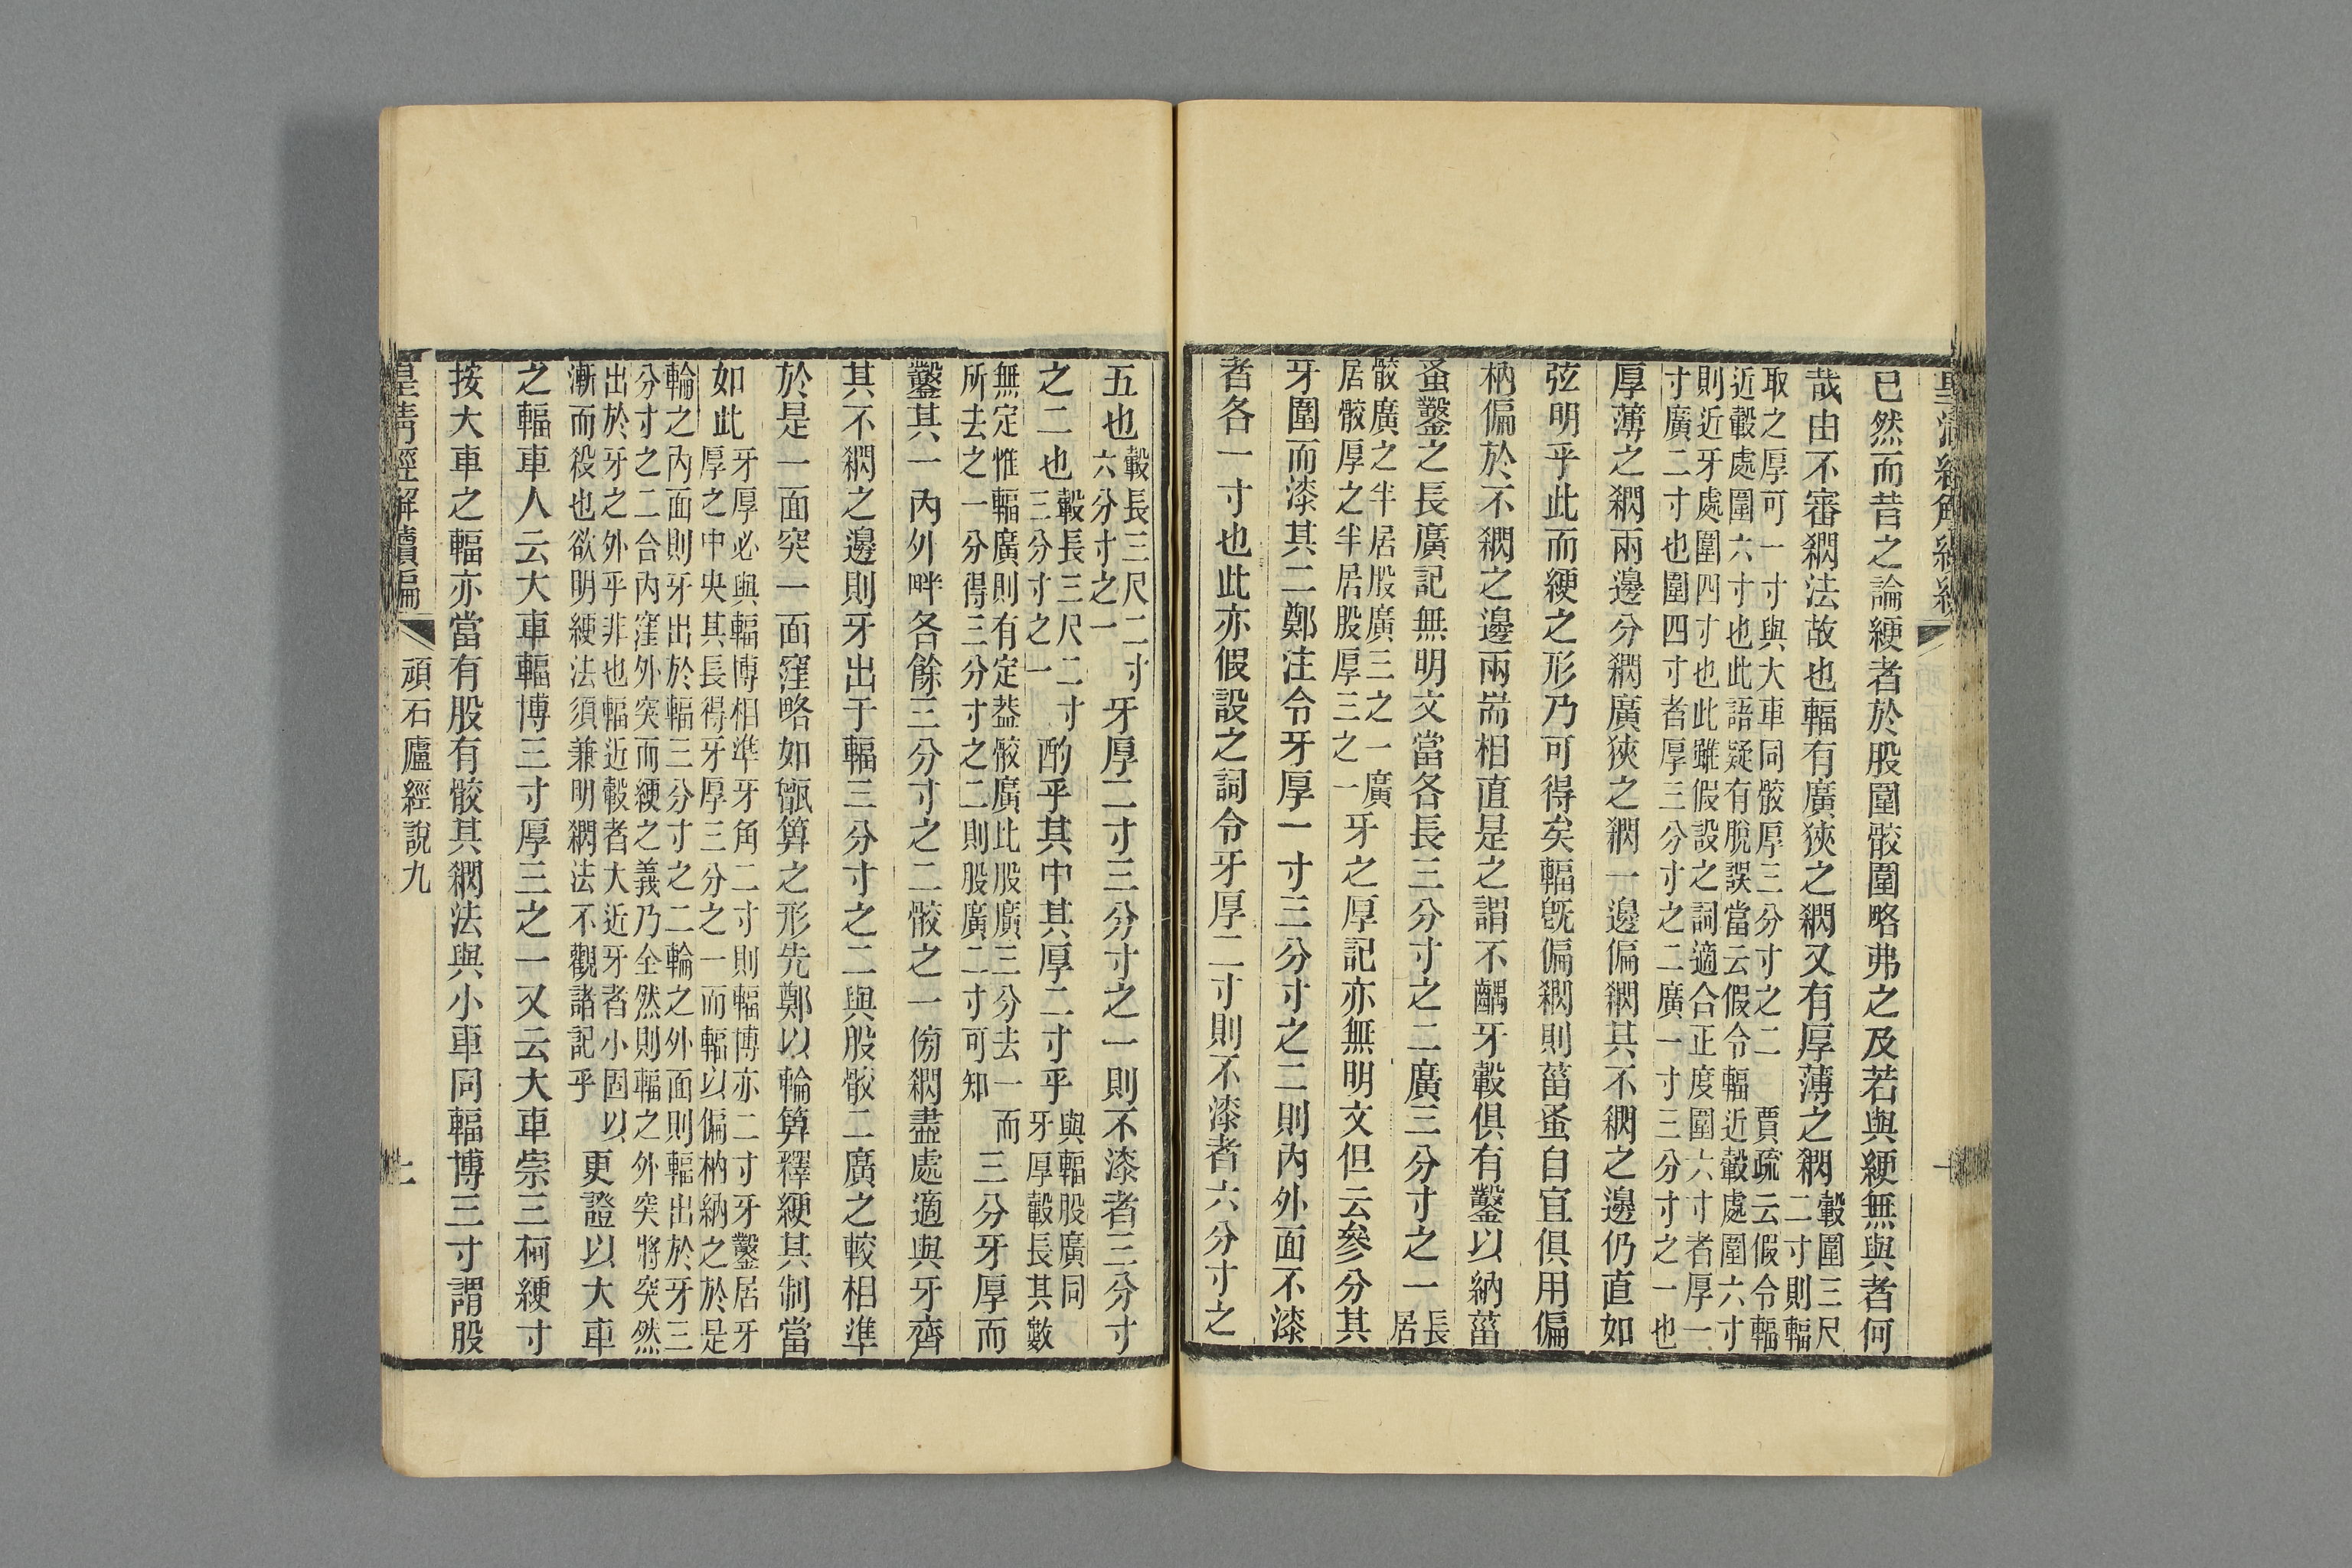 已然而昔之論綆者於股圍骹圍略弗之及若與綆無與者何
哉由不審䦨法故也輻有廣狹之䦨又有厚薄之䦨轂圍三尺二寸則輻
取之厚可一寸與大車同骹厚三分寸之二 賈疏云假令輻
近轂處圍六寸也此語疑有脫誤當云假令輻近轂處圍六寸
則近牙處圍四寸也此雖假設之詞適合正度圍六寸者厚一
寸廣二寸也圍四寸者厚三分寸之二廣一寸三分寸之一也
厚薄之䦨兩邊分䦨廣狹之䦨一邊偏䦨其不䦨之邊仍直如
弦明乎此而綆之形乃可得矣輻旣偏䦨則菑蚤自宜俱用偏
枘偏於不䦨之邊兩耑相直是之謂不齵牙轂俱有鑿以納菑
蚤鑿之長廣記無明文當各長三分寸之二廣三分寸之一長居
骹廣之半居股廣三之一廣
居骹厚之半居股厚三之一牙之厚記亦無明文但云參分其
牙圍而漆其二鄭注令牙厚一寸三分寸之二則內外面不漆
者各一寸也此亦假設之詞令牙厚二寸則不漆者六分寸之
五也轂長三尺二寸六分寸之一牙厚二寸三分寸之一則不漆者三分寸
之二也轂長三尺二寸三分寸之一酌乎其中其厚二寸乎與輻股廣同牙厚轂長其數
無定惟輻廣則有定葢骹廣此股廣三分去一而
所去之一分得三分寸之二則股廣二寸可知三分牙厚而
鑿其一內外畔各餘三分寸之二骹之一傍䦨盡處適與牙齊
其不䦨之邊則牙出于輻三分寸之二與股骹二廣之較相準
於是一面突一面窪略如甑箅之形先鄭以輪箅釋綆其制當
如此牙厚必與輻博相準牙角二寸則輻博亦二寸牙鑿居牙
厚之中央其長得牙厚三分之一而輻以偏枘納之於是
輪之內面則牙出於輻三分寸之二輪之外面則輻出於牙三
分寸之二合內窪外突而綆之義乃全然則輻之外突將突然
出於牙之外乎非也輻近轂者大近牙者小固以
漸而殺也欲明綆法須兼明䦨法不觀諸記乎更證以大車
之輻車人云大車輻博三寸厚三之一又云大車崇三柯綆寸
按大車之輻亦當有股有骹其䦨法與小車同輻博三寸謂股
皇淸經解續編 頑石廬經說九